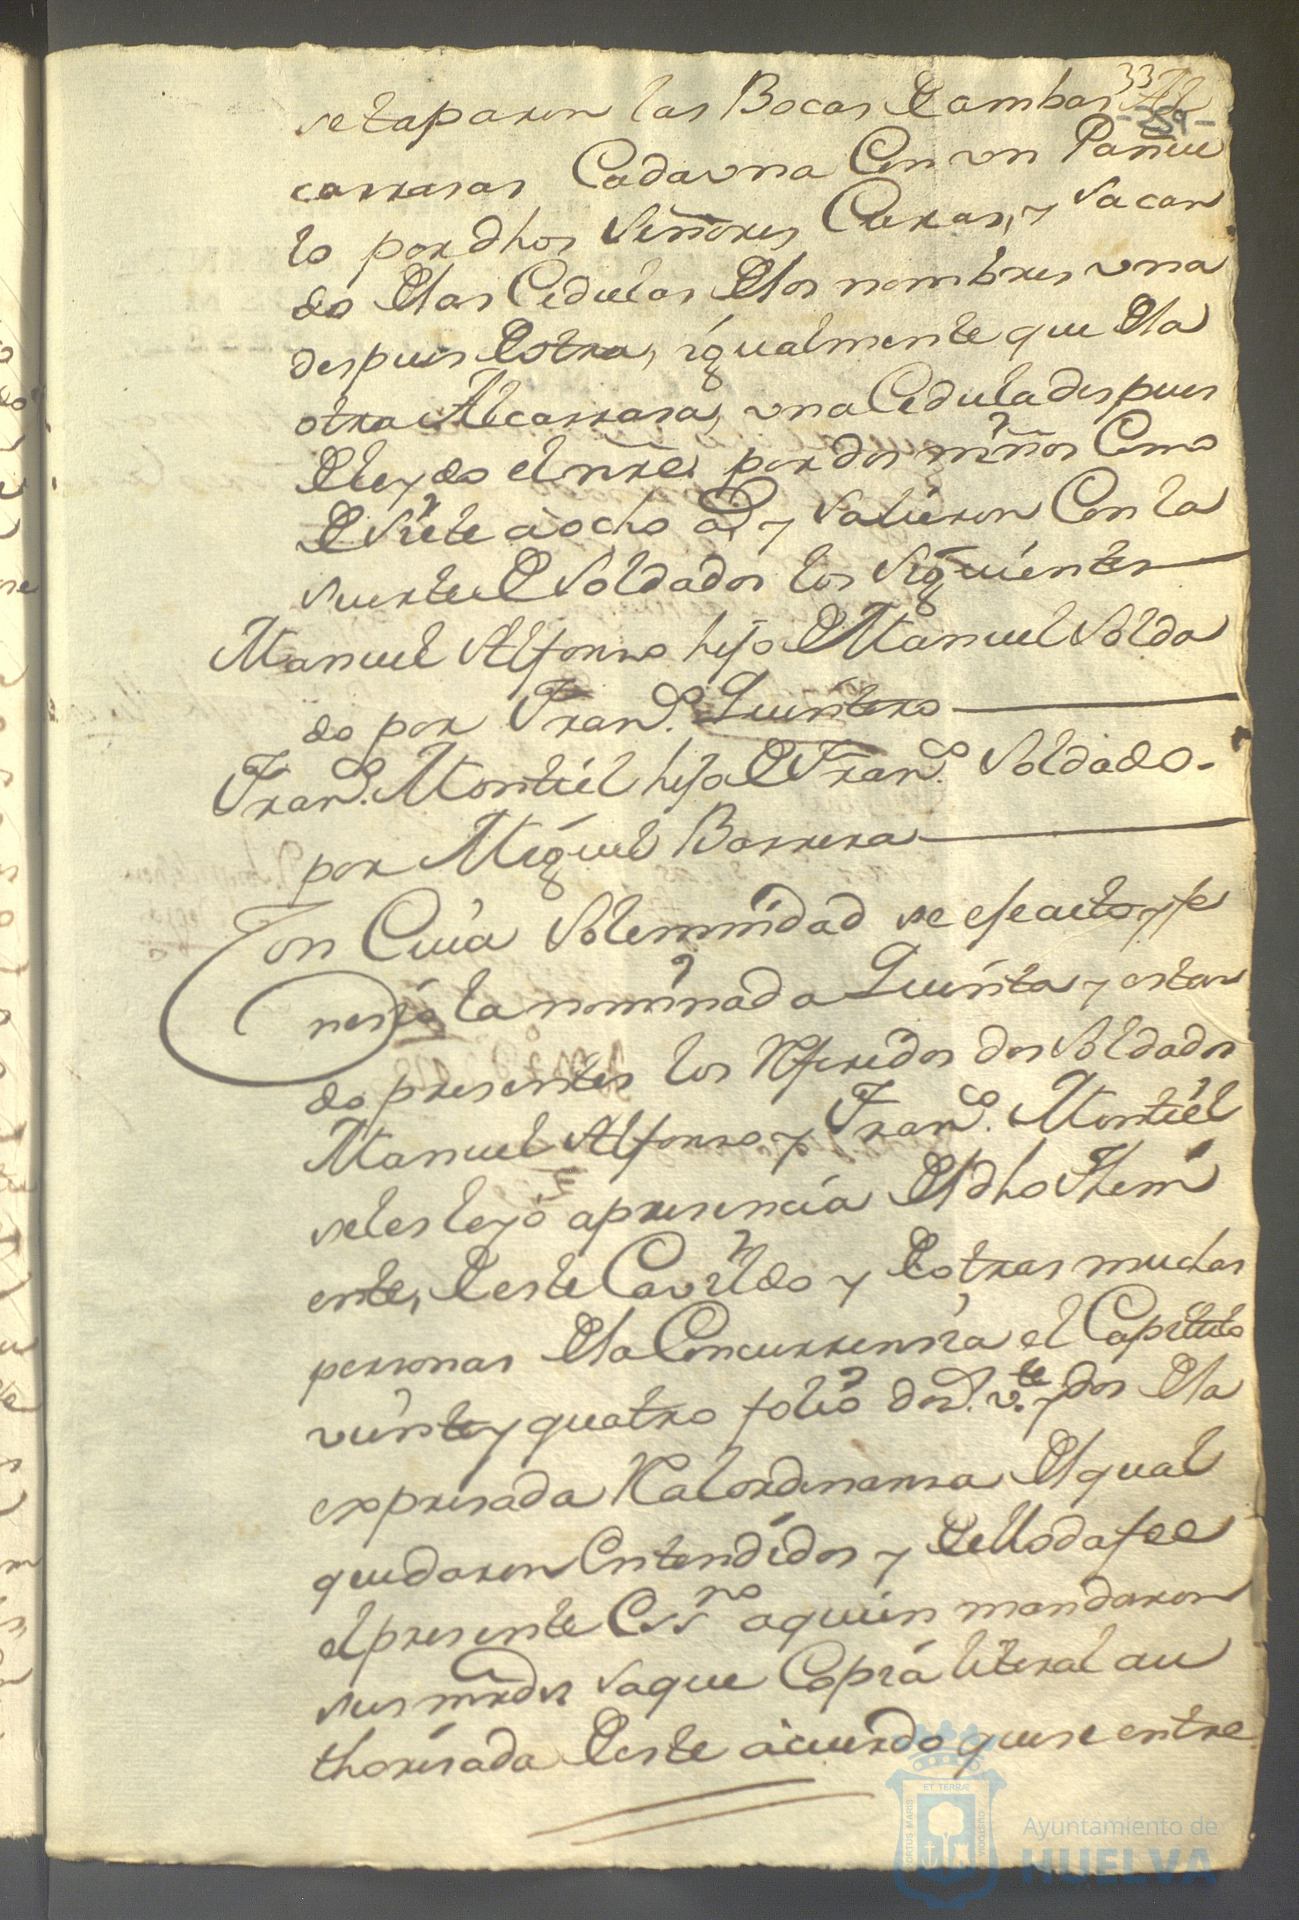 33
39
se taparon las Bocas de ambas Al
carrasas Cada una Con un Pañue
lo por dhos Señores Curas, y sacan
do de las Cedulas de los nombres una
despues de otra, igualmente que de la
otra Alcarrasa, una Cedula despues
de leydo el nre. por dos niños Como
de siete a ocho as. y salieron Con la
suerte de Soldados los siguientes
Manuel Alfonso hijo de Manuel Solda
do por Franco. Quintero
Franco. Montiel hijo de Franco. Soldado.
por Miguel Barrera
Con Cuia Solemnidad se efectuo y fe
nesio la nominada Quinta y estan
do presentes los Referidos dos Soldados
Manuel Alfonso y Franco. Montiel
se les leyo a presencia del dho Theni
ente, de este Cavildo y de otras muchas
personas de la Concurrensia el Capitulo
viente y quatro folio dos. vte. y dos de la
expresada Real ordenansa del qual
quedaron Entendidos y de ello da fee
el presente Essno a quien mandaron
sus mrds saque Copia literal au
thorisada de este acuerdo que se entre
ET TERRÆ
CUSTODIA
PORTUS MARIS
Ayuntamiento de
HUELVA